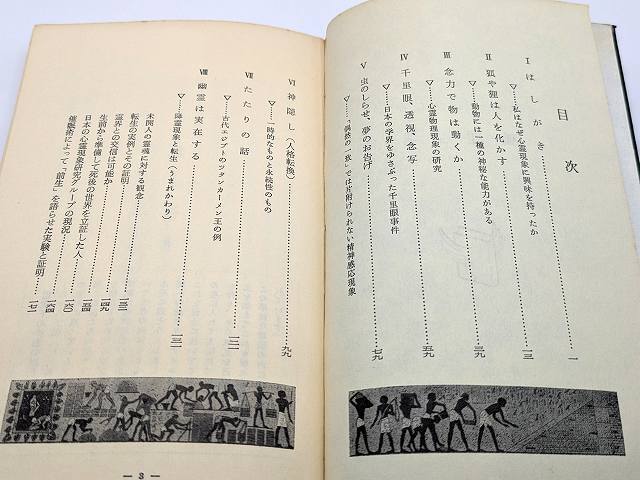 目次
Ⅰ はしがき……一
▽……私はなぜ心霊現象に興味を持ったか
Ⅱ 狐や狸は人を化かす……一三
▽……動物には一種の神秘な能力がある
Ⅲ 念力で物は動くか……三九
▽……心霊物理現象の研究
Ⅳ 千里眼、透視、念写……五九
▽……日本の学界をゆさぶった千里眼事件
Ⅴ 虫のしらせ、夢のお告げ……七九
▽……“偶然の一致”では片附けられない精神感応現象
Ⅵ 神隠し(人格転換)……九九
▽……一時的なものと永続性のもの
Ⅶ たたりの話……一二一
▽……古代エジプトのツタンカーメン王の例
Ⅷ 幽霊は実在する……一三一
▽……降霊現象と転生(うまれかわり)
未開人の霊魂に対する観念……一三二
転生の実例とその証明……一四九
霊界との交信は可能か……一五四
生前から準備して死後の世界を立証した人……一六〇
日本の心霊現象研究グループの現況……一六四
催眠術によって、“前生”を語らせた実験と証明……一七一
— 3 —